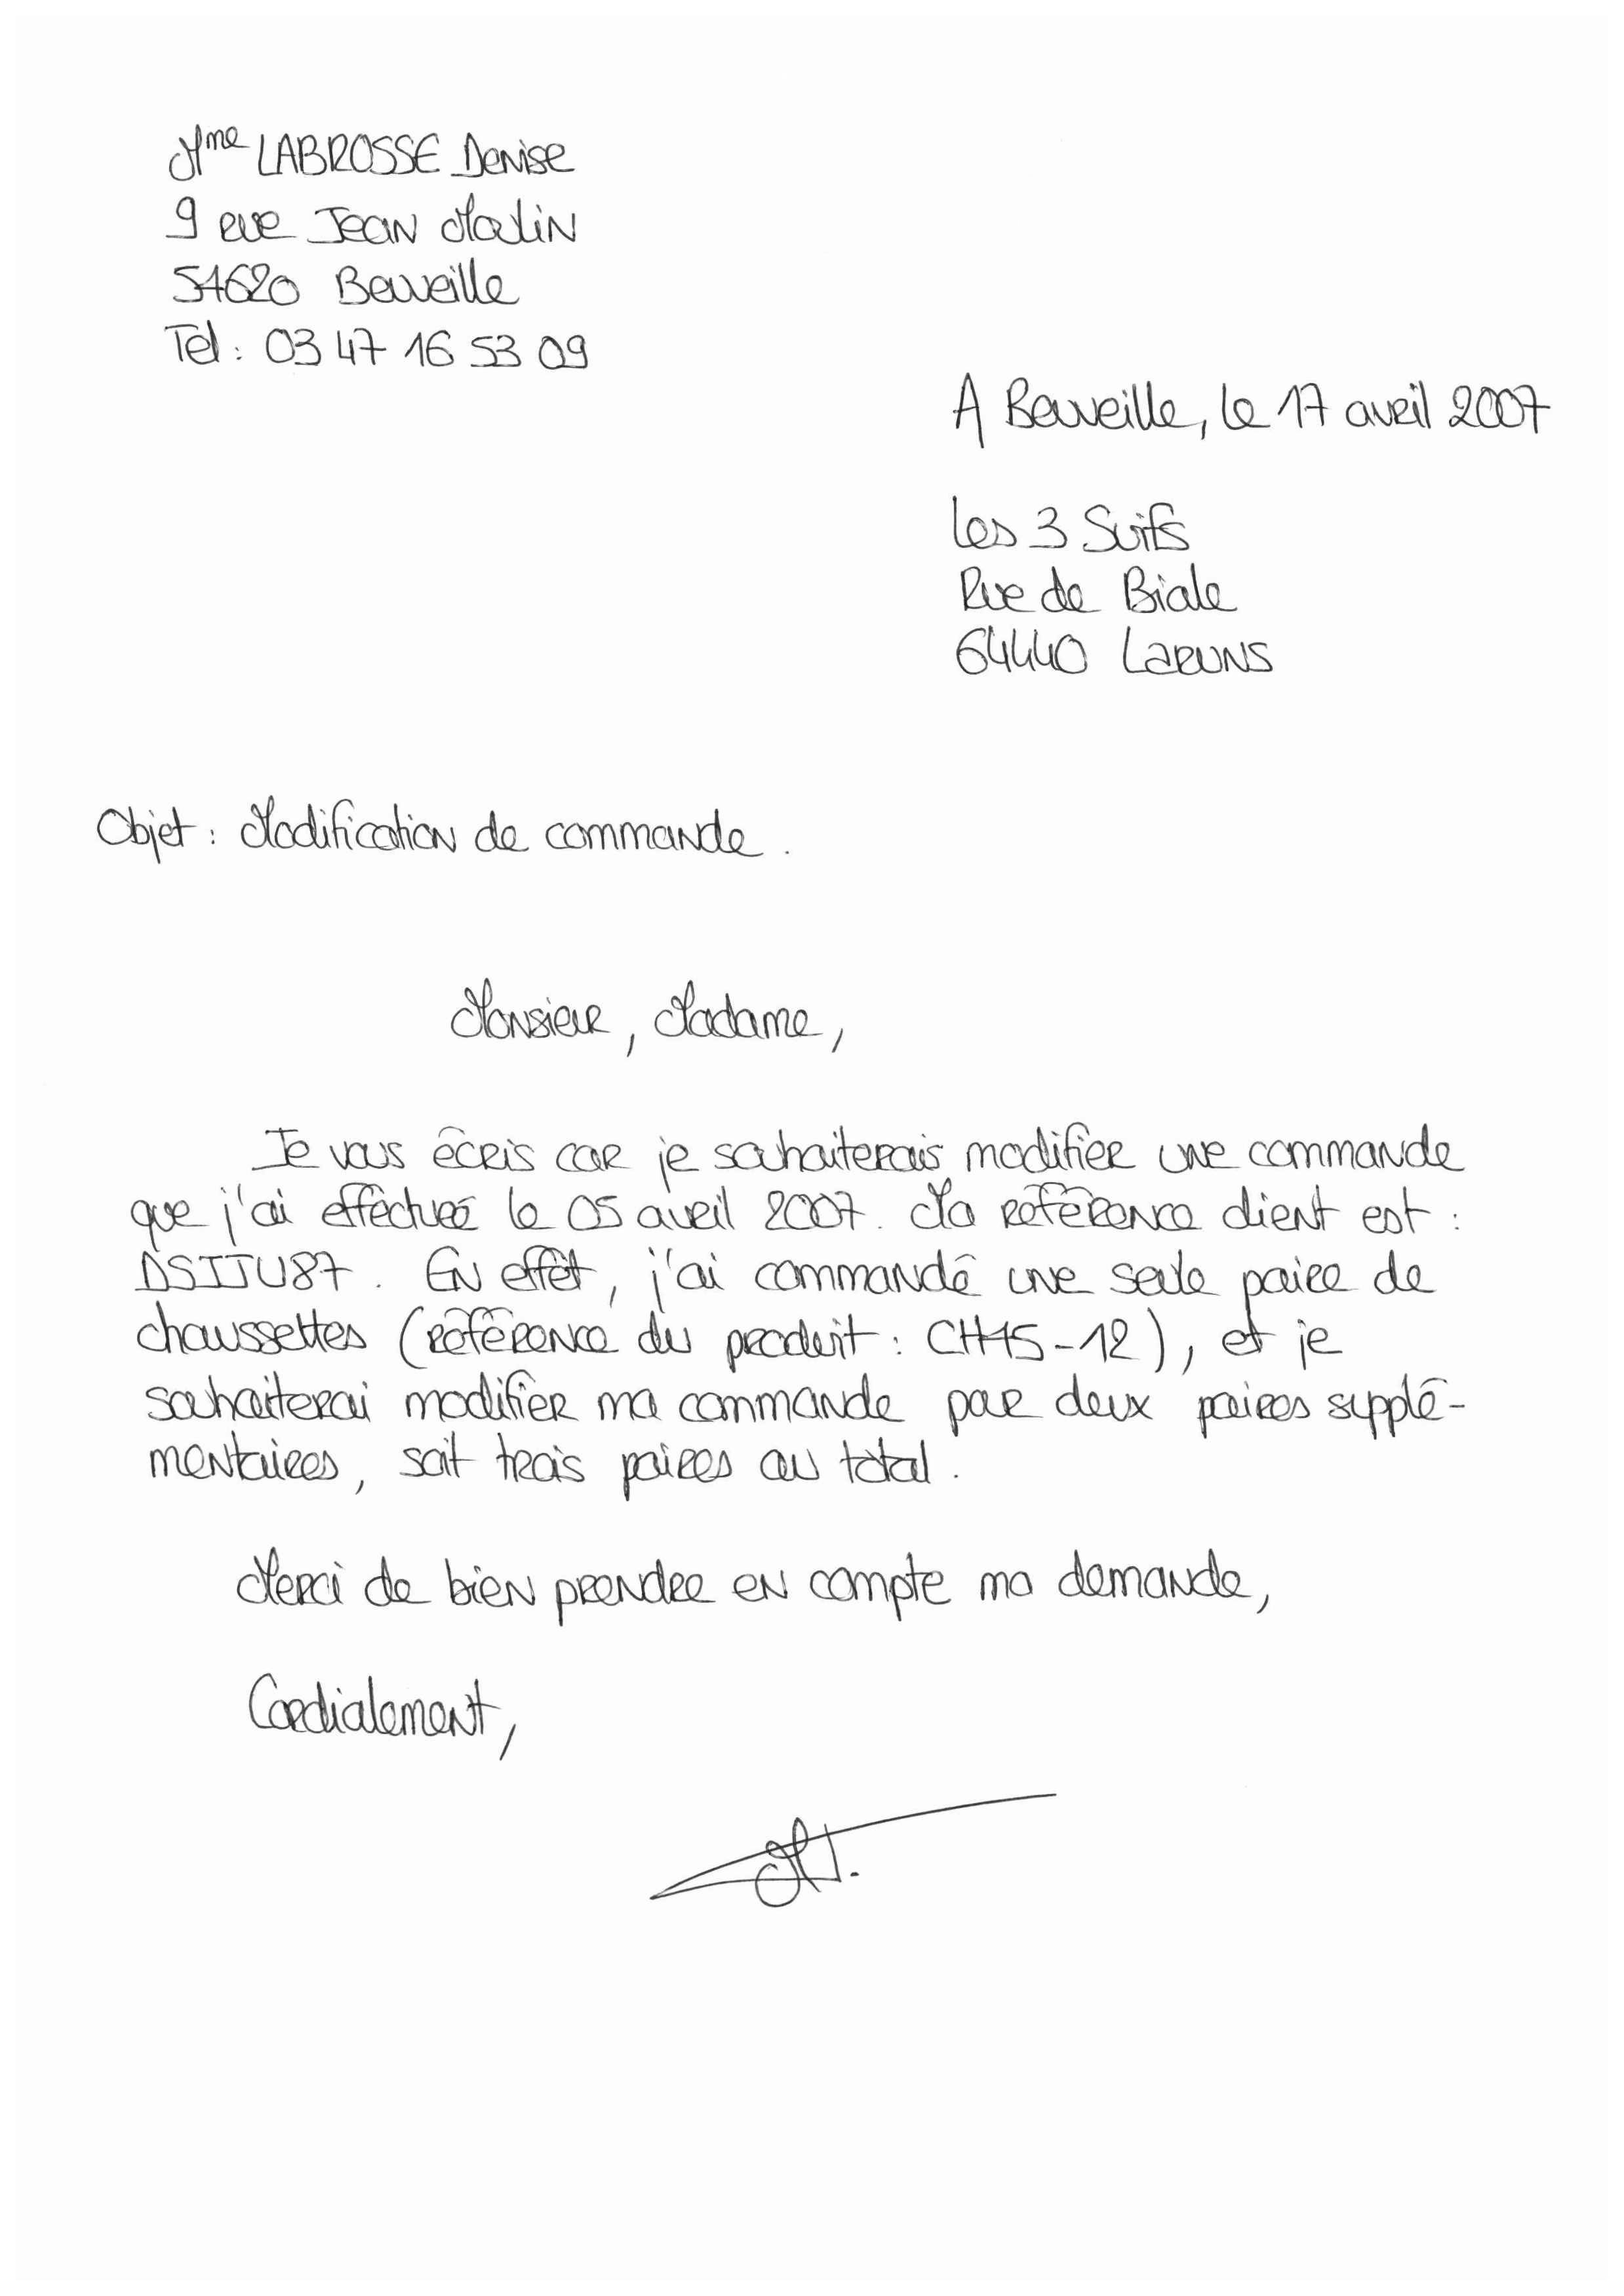 Mme LABROSSE Denise
9 rue Jean Moulin
54620 Beuveille
Tel : 03 47 16 53 09
A Beuveille, le 17 avril 2007
Les 3 Suifs
Rue de Biale
64440 Laruns
Objet : Modification de commande.
Monsieur, Madame,
Je vous écris car je souhaiterais modifier une commande
que j'ai effectuée le 05 avril 2007. Ma référence client est :
DSIJU87. En effet, j'ai commandé une seule paire de
chaussettes (référence du produit : CHH5-12), et je
souhaiterai modifier ma commande par deux paires supplé-
mentaires, soit trois paires au total.
Merci de bien prendre en compte ma demande,
Cordialement,